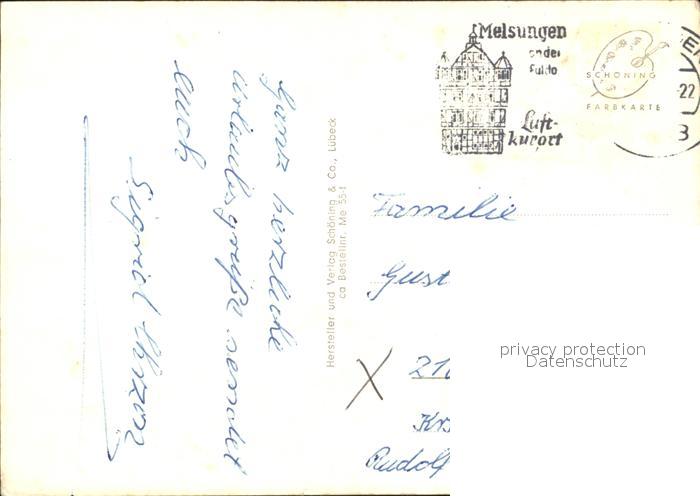 Ganz herzliche
Urlaubsgrüße sendet
euch
Hersteller und Verlag Schöning & Co., Lübeck
ca Bestellnr. Me 55-1
Melsungen
an der
Fulda
Luft-
kurort
SCHÖNING
FARBKARTE
-22
3
Familie
Gust
21
Kr
Rudolf
privacy protection
Datenschutz